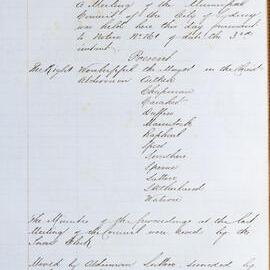 A Meeting of the Municipal
Council of the City of Sydney
was held here this day pursuant
to Notice No. 161 of date the 3rd
instant
Present
The Right Worshipful the Mayor in the Chair
Aldermen
Chapman
Caraher
Duffin
Raphael
Speer
Smithers
Spence
Sutton
Sutherland
Watson
The Minutes of the proceedings at the last
Meeting of the Council were read by the
Town Clerk
Moved by Alderman Sutton seconded by